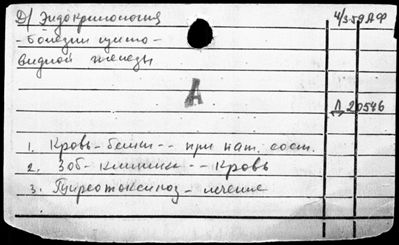 Д/ Эндокринология
4/3-59 АФ
болезни щито-
видной железы
А
Д 20546
1. Кровь-белки -- при пат. сост.
2. Зоб-клиника -- кровь
3. Тиреотоксикоз - лечение